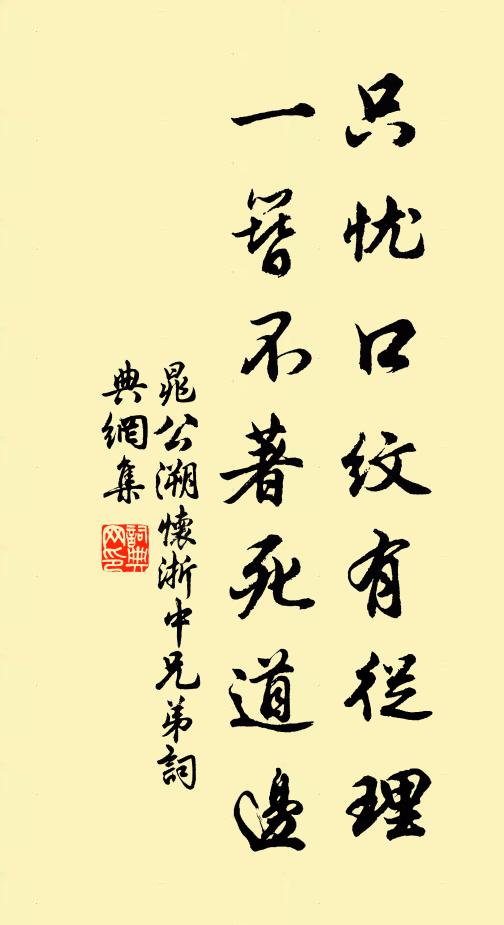 只忧口紋有從理
一簪不著死道邊
晁公溯懷浙中兄弟詞
典網集
詞典
网印